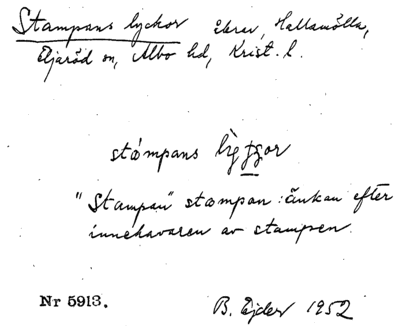 Stampans lyckor åkrar, Hallamölla,
Eljaröd sn, Albo hd, Krist. l.
stampans
"Stampan" stampan : änkan efter
innehavaren av stampen
Nr 5913.
B. Ejder 1952